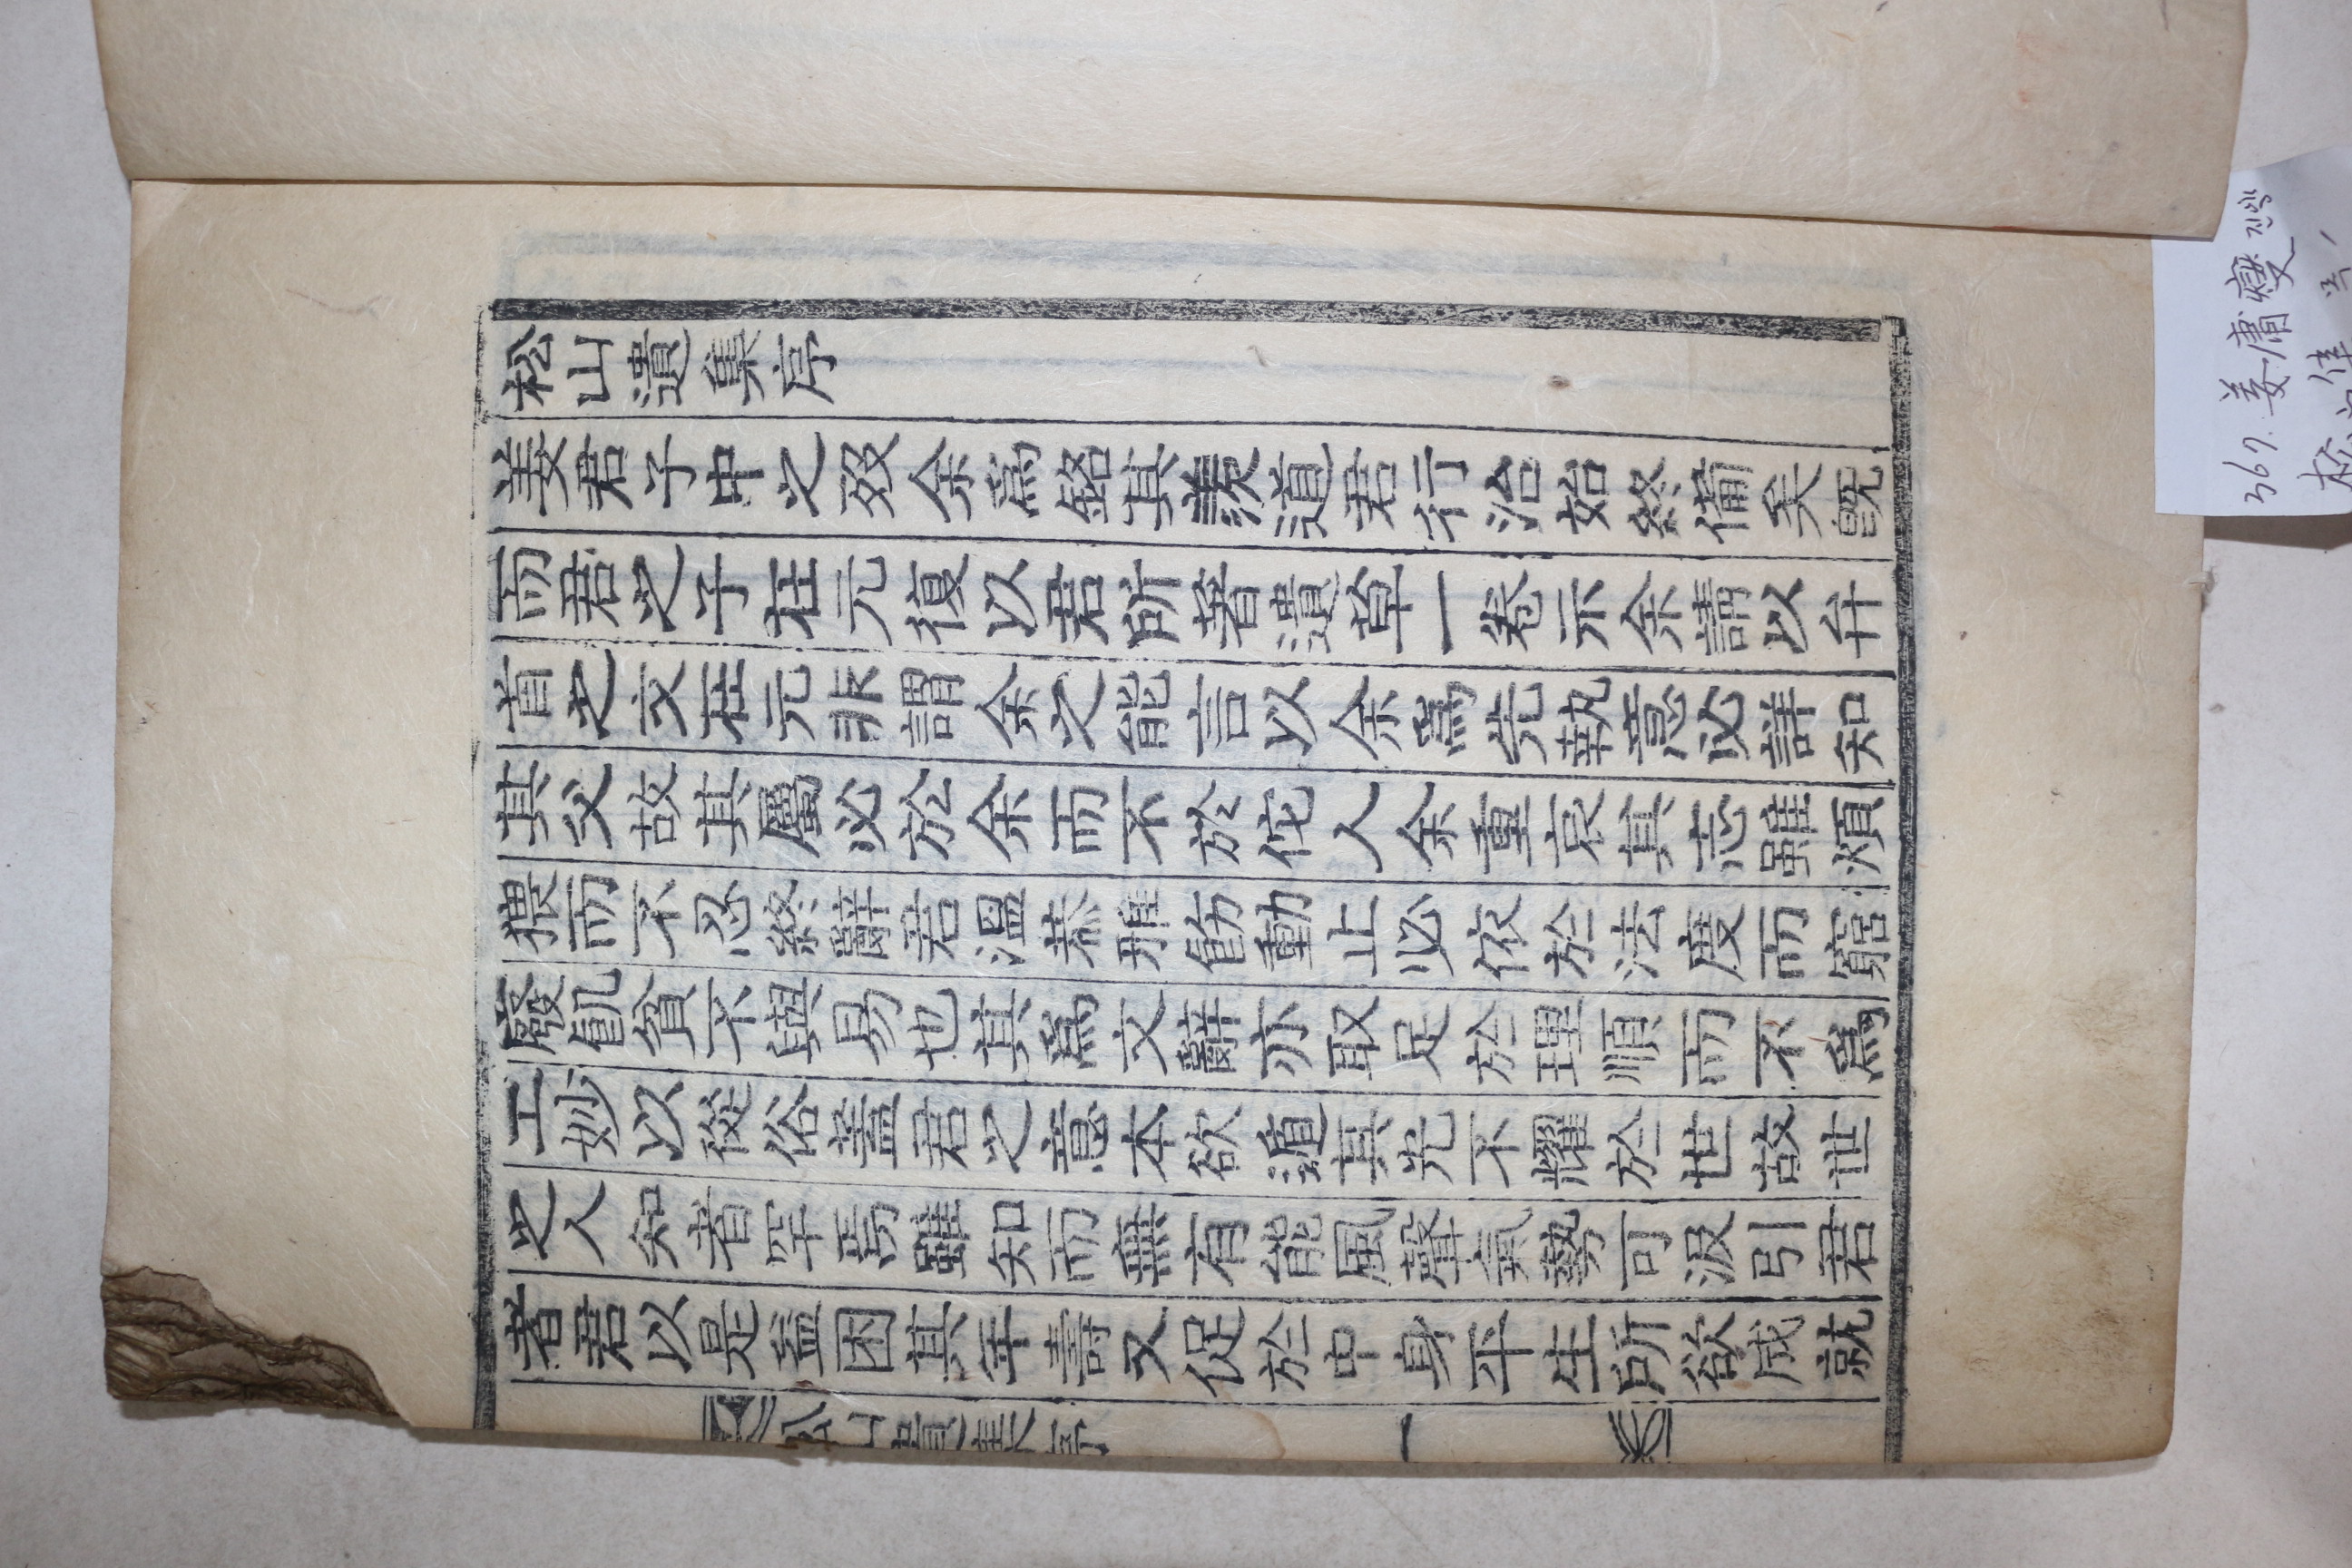 松山遺集序
姜君子中之歿余爲銘其羨道君行治始終備矣旣
而君之子在元復以君所著遺草一卷示余請以弁
首之文在元非謂余之能言以余爲先執意必詳知
其父故其屬必於余而不於佗人余重哀其志雖煩
猥而不忍終辭君溫恭雅飭動止必依於法度而窮
廢飢貧不與易也其爲文辭亦取足於理順而不爲
工妙以從俗蓋君之意本欲遁其光不耀於世故世
之人知者罕焉雖知而無有能風聲氣勢可汲引君
者君以是益困其年壽又促於中身平生所欲成就
松山遺集序 一
367. 姜庸燮
松山